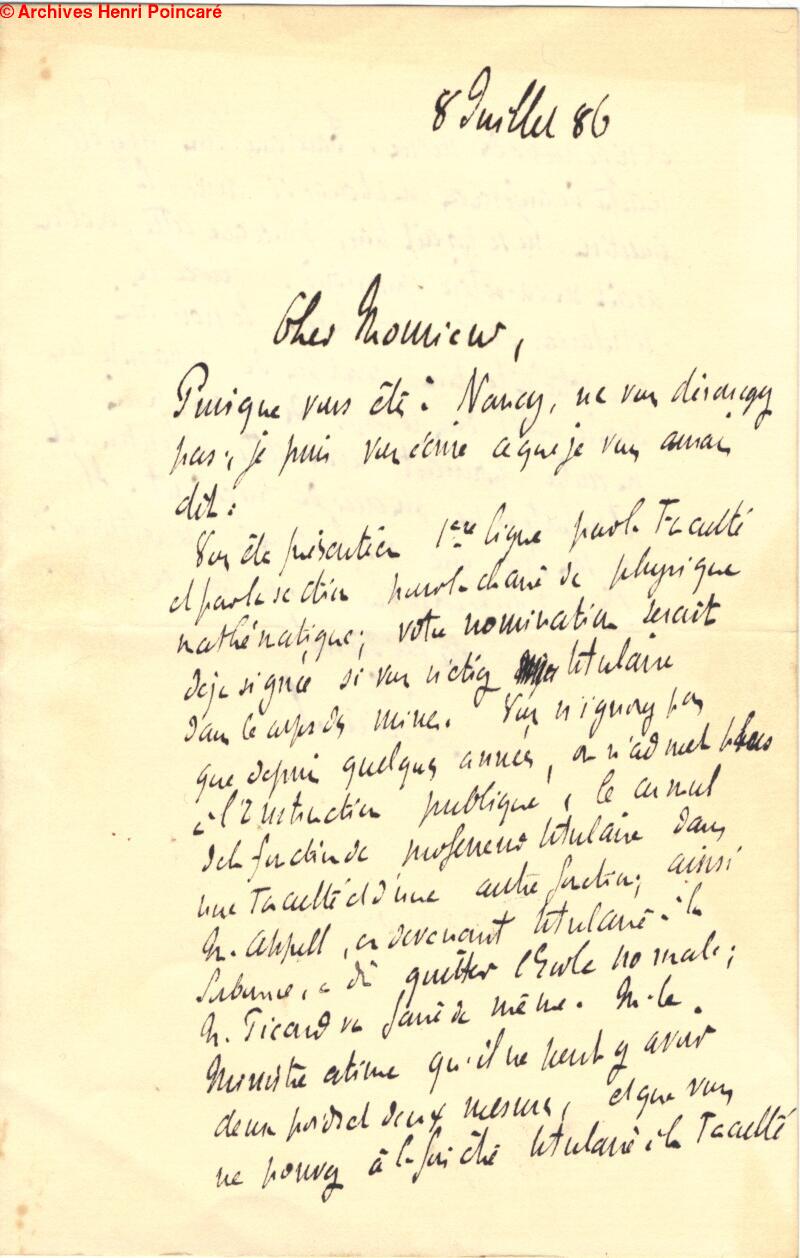 © Archives Henri Poincaré
8 Juillet 86
Cher Monsieur,
Puisque vous êtes à Nancy, ne vous dérangez
pas ; je puis vous écrire ce que je vous aurais
dit :
Vous êtes présenté en 1ere ligne par la Faculté
et par la section pour la chaire de physique
mathématique ; votre nomination serait
déjà signée si vous n'étiez titulaire
dans le corps des mines. Vous n'ignorez pas
que depuis quelques années, on n'admet plus
à l'Instruction publique, le cumul
de la fonction de professeur titulaire dans
une Faculté et d'une autre fonction ; ainsi
M. Appell, en devenant titulaire à la
Sorbonne, a dû quitter l'Ecole normale ;
M. Picard va faire de même. M. le
Ministre estime qu'il ne peut y avoir
deux poids et deux mesures, et que vous
ne pouvez à la fois être titulaire à la Faculté